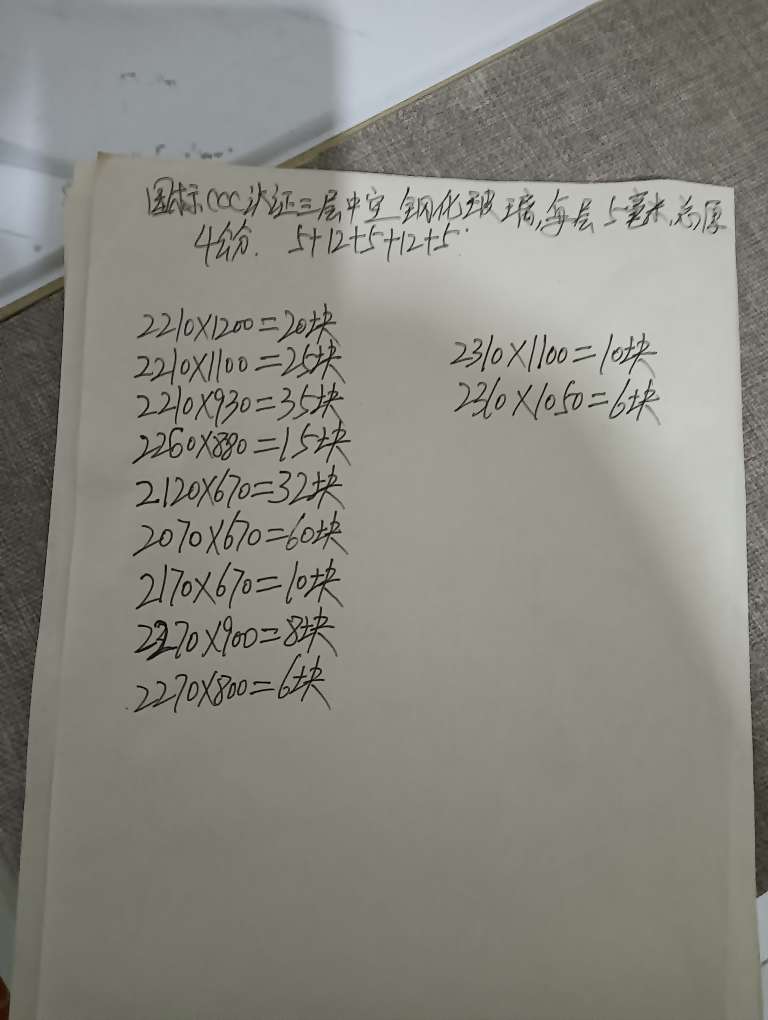 国标CCC认证三层中空钢化玻璃,每层5毫米,总厚
4公分. 5+12+5+12+5
2210×1200=20块
2210×1100=25块
2210×930=35块
2260×880=15块
2120×670=32块
2070×670=60块
2170×670=10块
2270×900=8块
2270×800=6块
2310×1100=10块
2360×1050=6块